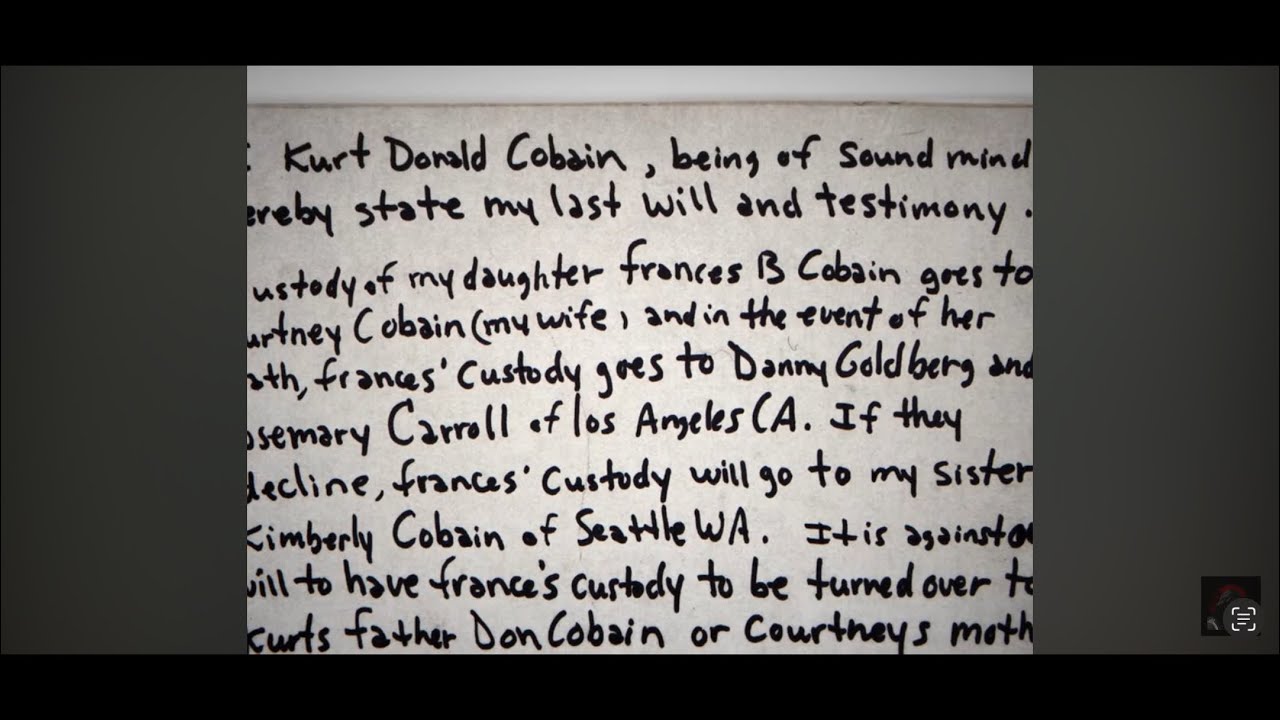 Kurt Donald Cobain, being of sound mind
ereby state my last will and testimony.
ustody of my daughter frances B Cobain goes to
urtney Cobain (my wife) and in the event of her
ath, frances' custody goes to Danny Goldberg and
osemary Carroll of los Angeles CA. If they
decline, frances' custody will go to my sister
Kimberly Cobain of Seattle WA. It is against ou
will to have france's custody to be turned over to
Kurts father Don Cobain or Courtneys moth